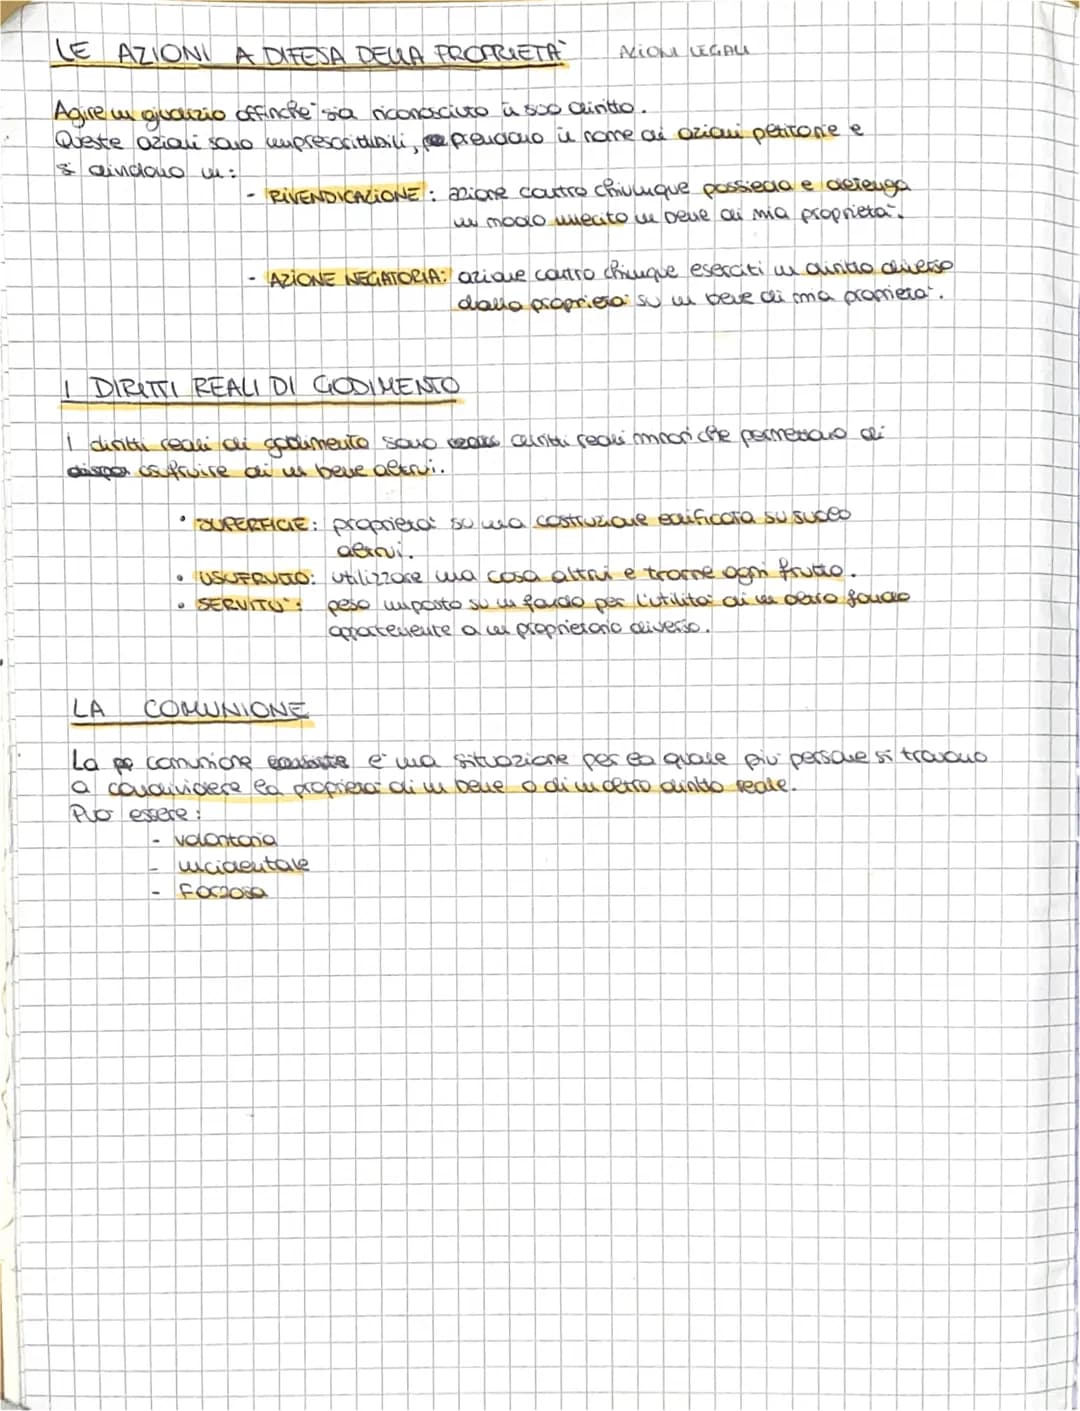 LE AZIONI A DIFESA DELLA PROPRIETA' AZIONI LEGALI
Agire in giudizio affinche' sia riconosciuto il suo diritto.
Queste azioni sono imprescrittibili, prendono il nome di azioni petitorie e
si dividono in:
- RIVENDICAZIONE: azione contro chiunque possieda e detenga
in modo illecito un bene di mia proprieta'.
- AZIONE NEGATORIA: azione contro chiunque eserciti un diritto diverso
dalla proprieta' su un bene di mia proprieta'.
I DIRITTI REALI DI GODIMENTO
I diritti reali di godimento sono diritti reali minori che permettono di
usufruire di un bene altrui.
• SUPERFICIE: proprieta' su una costruzione edificata su suolo
altrui.
• USUFRUTTO: utilizzare una cosa altrui e trarne ogni frutto.
• SERVITU': peso imposto su un fondo per l'utilita' di un altro fondo
appartenente a un proprietario diverso.
LA COMUNIONE
La comunione e' una situazione per la quale piu' persone si trovano
a condividere la proprieta' di un bene o di un altro diritto reale.
Puo' essere:
- volontaria
- incidentale
- Forzosa